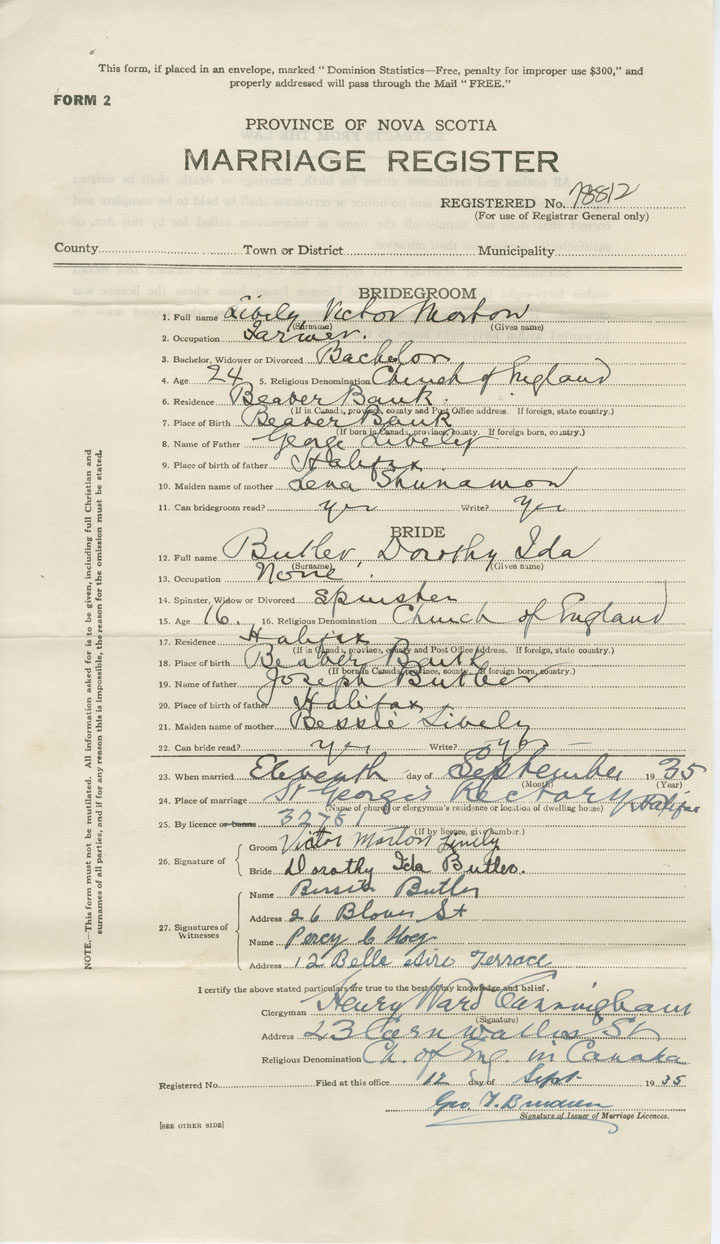 This form, if placed in an envelope, marked "Dominion Statistics—Free, penalty for improper use $300," and
properly addressed will pass through the Mail "FREE."
FORM 2
PROVINCE OF NOVA SCOTIA
MARRIAGE REGISTER
REGISTERED No. 78812
(For use of Registrar General only)
County Town or District Municipality
BRIDEGROOM
1. Full name Lively Victor Morton
(Surname) (Given name)
2. Occupation Farmer.
3. Bachelor, Widower or Divorced Bachelor
4. Age 24 5. Religious Denomination Church of England
6. Residence Beaver Bank.
(If in Canada, province, county and Post Office address. If foreign, state country.)
7. Place of Birth Beaver Bank
(If born in Canada, province, county. If foreign born, country.)
8. Name of Father George Lively
9. Place of birth of father Halifax
10. Maiden name of mother Lena Shunamon
11. Can bridegroom read? yes Write? yes
BRIDE
12. Full name Butler, Dorothy Ida
(Surname) (Given name)
13. Occupation None.
14. Spinster, Widow or Divorced Spinster
15. Age 16. 16. Religious Denomination Church of England
17. Residence Halifax
(If in Canada, province, county and Post Office address. If foreign, state country.)
18. Place of birth Beaver Bank
(If born in Canada, province, county. If foreign born, country.)
19. Name of father Joseph Butler
20. Place of birth of father Halifax
21. Maiden name of mother Bessie Lively
22. Can bride read? yes Write? yes
23. When married Eleventh day of September 1935
(Month) (Year)
24. Place of marriage St George's Rectory Halifax
(Name of church or clergyman's residence or location of dwelling house)
25. By licence or banns 32781
(If by licence, give number.)
26. Signature of
Groom Victor Morton Lively
Bride Dorothy Ida Butler.
27. Signatures of Witnesses
Name Bessie Butler
Address 26 Blower St
Name Percy C Hoeg
Address 12 Belle Aire Terrace
I certify the above stated particulars are true to the best of my knowledge and belief.
Clergyman Henry Ward Cunningham
(Signature)
Address 23 Cornwallis St
Religious Denomination Ch. of Eng. in Canada
Registered No. Filed at this office 12 day of Sept. 1935
Geo. T.
Signature of Issuer of Marriage Licences.
[SEE OTHER SIDE]
NOTE.—This form must not be mutilated. All information asked for is to be given, including full Christian and
surnames of all parties, and if for any reason this is impossible, the reason for the omission must be stated.